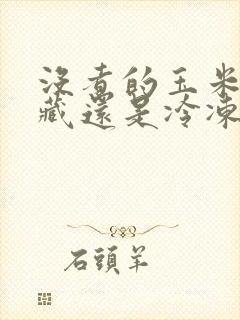 没煮的玉米
藏還是冷凍
石頭羊